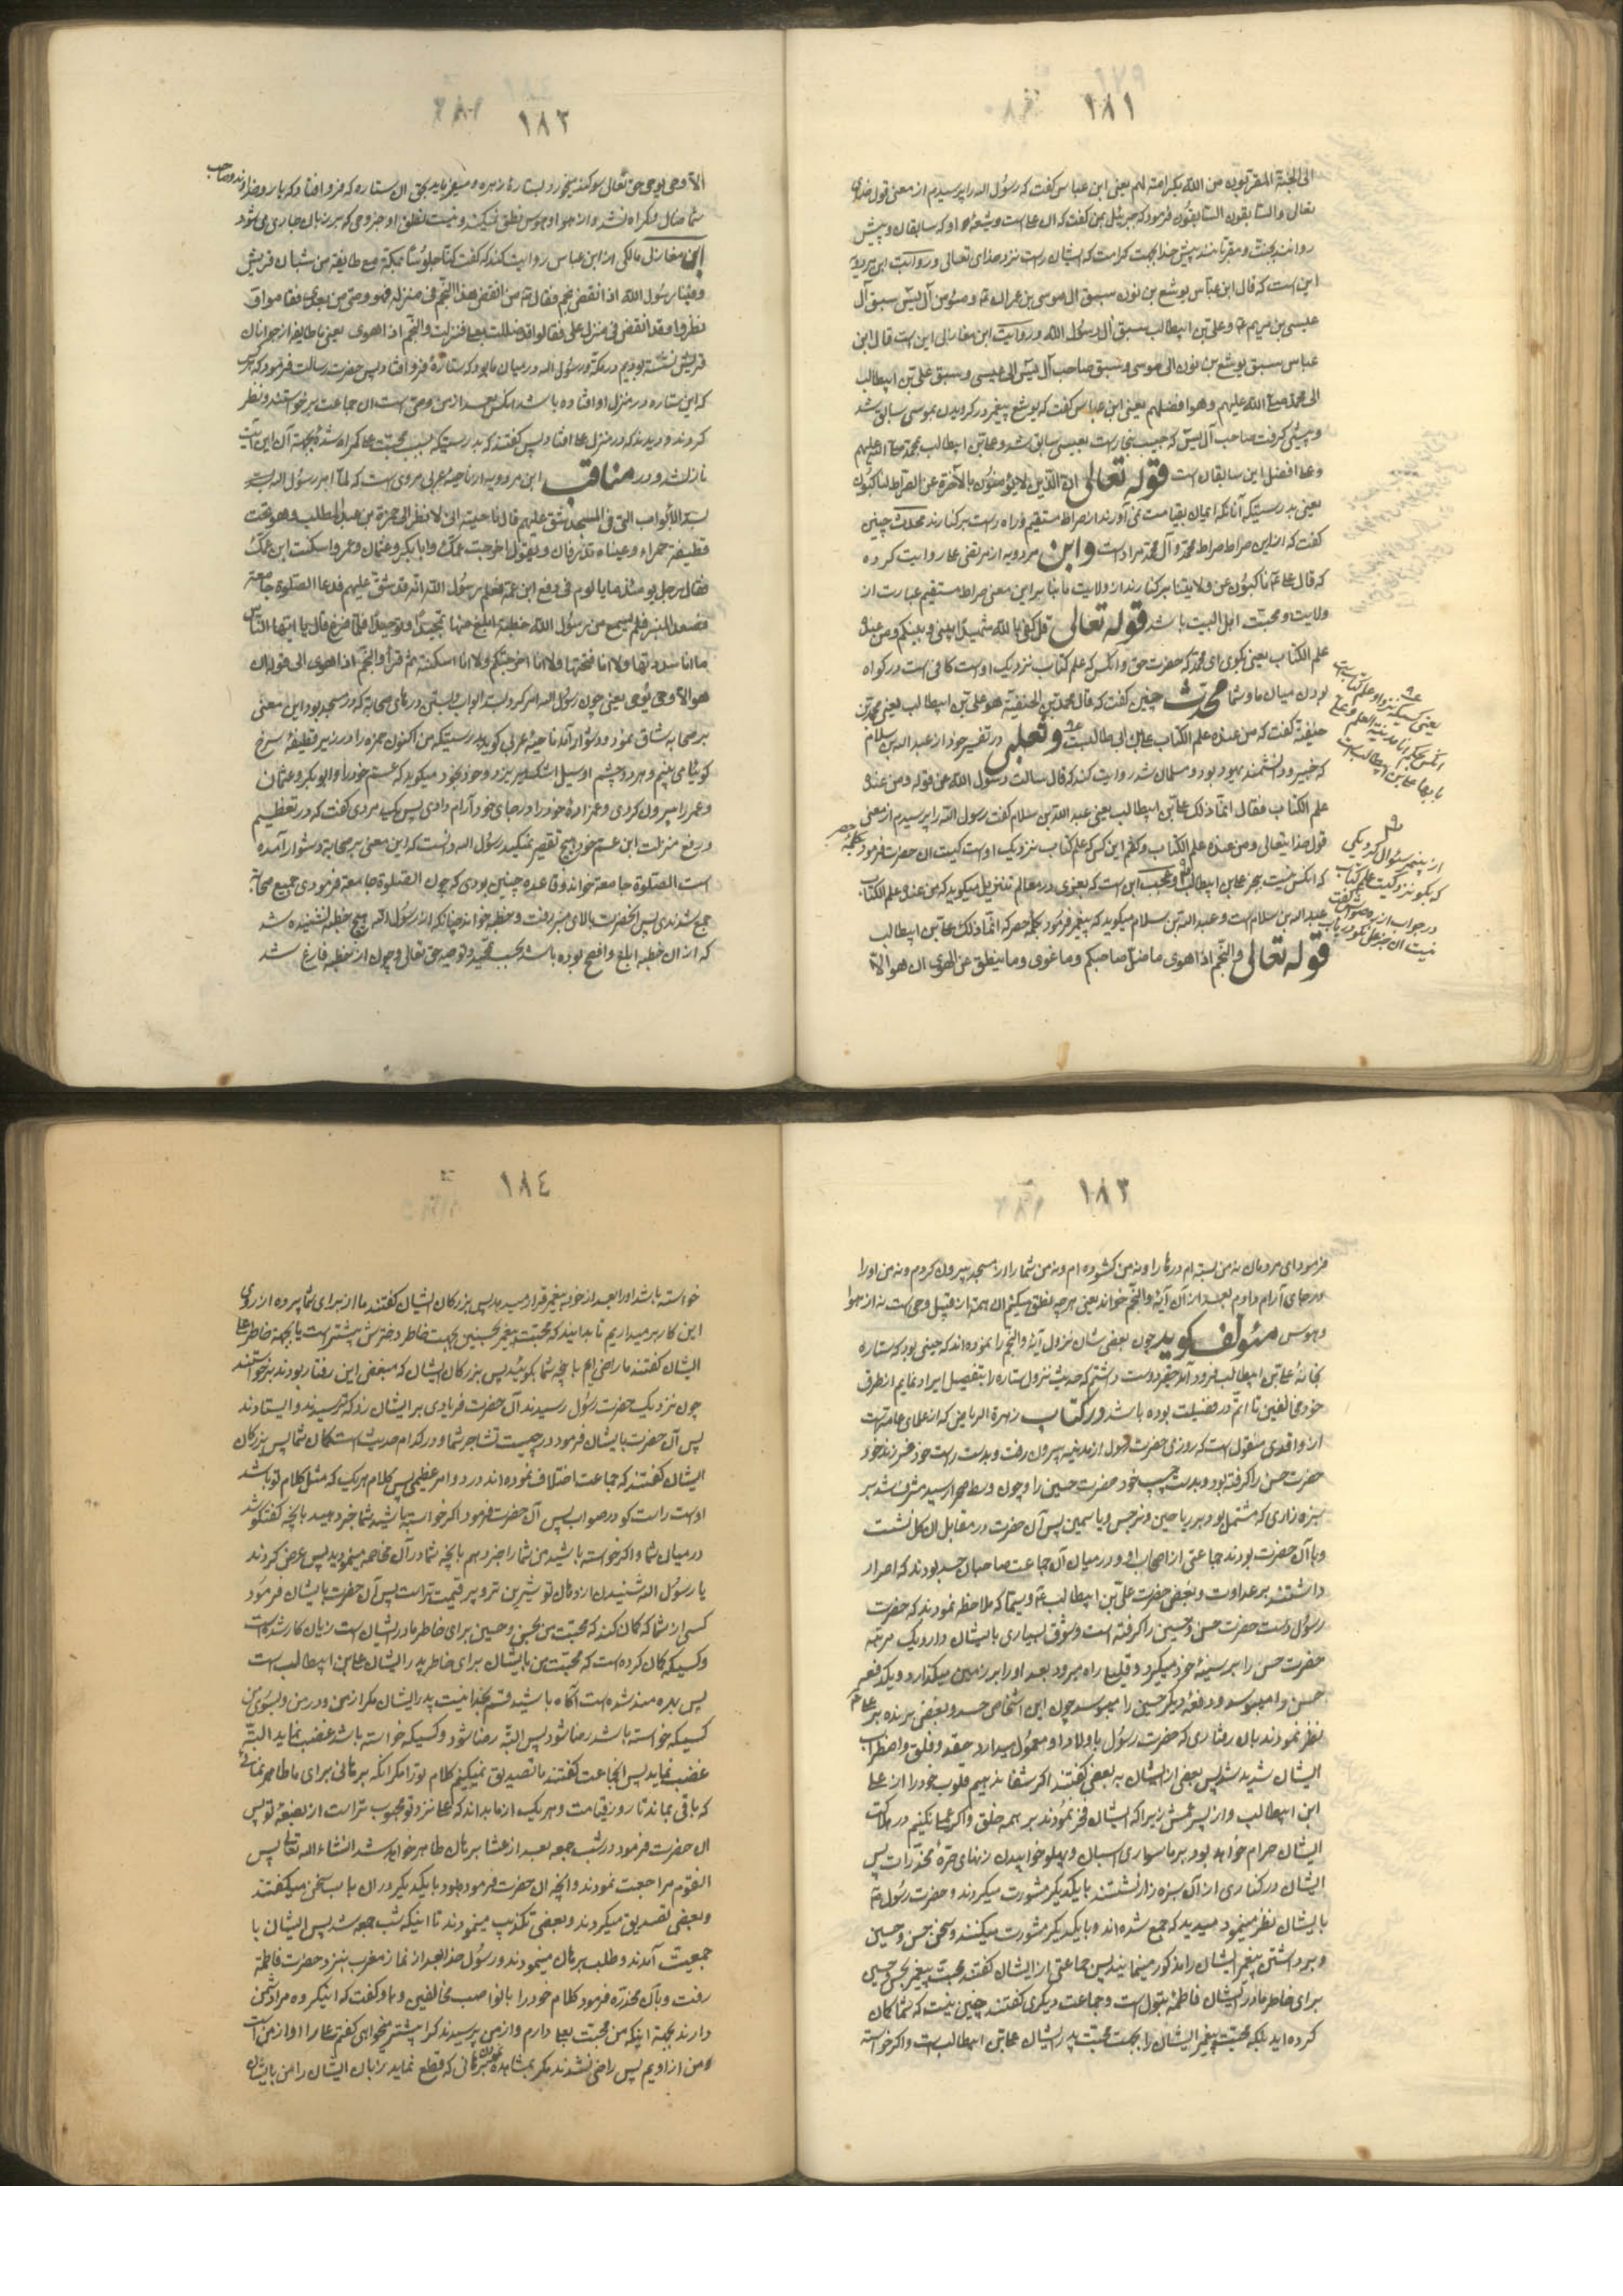 ١٨١
الی الجنة المقربون من الله بکرامته لهم یعنی ابن عباس گفت که رسول الله را پرسیدم از معنی قول خدای
تعالی والسابقون السابقون فرمود که جبرئیل بمن گفت که آن علی است و شیعهٔ او که سابقان و پیش
روانند بجنت و مقربانند پیش خدا بجهت کرامت که ایشان راست نزد خدای تعالی و روایت ابن مردویه
این است که قال ابن عباس یوشع بن نون سبق الی موسی بن عمران و مؤمن آل یس سبق الی
عیسی بن مریم و علی بن ابیطالب سبق الی رسول الله و روایت ابن مغازلی این است قال ابن
عباس سبق یوشع بن نون الی موسی و سبق صاحب آل یس الی عیسی و سبق علی بن ابیطالب
الی محمد صلی الله علیهم و هو افضلهم یعنی ابن عباس گفت که یوشع پیغمبر در گرویدن بموسی سابق شد
و پیشی گرفت صاحب آل یس که حبیب نجار است بعیسی سابق شد و علی بن ابیطالب بمحمد صلی الله علیهم
و علی افضل این سابقان است قوله تعالی ان الذین لا یؤمنون بالآخرة عن الصراط لناکبون
یعنی بدرستیکه آنانکه ایمان بقیامت نمی‌آورند از صراط مستقیم و راه راست برکنارند محدث چنین
گفت که از این صراط صراط محمد و آل محمد مراد است و ابن مردویه از مرتضی علی روایت کرده
که قال علی ناکبون عن ولایتنا برکنارند از ولایت ما بنا بر این معنی صراط مستقیم عبارت از
ولایت و محبت اهل البیت باشد قوله تعالی قل کفی بالله شهیدا بینی و بینکم و من عنده
علم الکتاب یعنی بگوی ای محمد که حضرت حق و آنکس که علم کتاب نزدیک اوست کافی است در گواه
بودن میان ما و شما محدث چنین گفت که قال محمد بن الحنفیة هو علی بن ابیطالب یعنی محمد بن
حنفیه گفت که من عنده علم الکتاب علی بن ابی طالب است و ثعلبی در تفسیر خود از عبد الله بن سلام
که خبیر و دانشمند یهود بود و مسلمان شد روایت کند که قال سالت رسول الله عن قوله و من عنده
علم الکتاب فقال انما ذلک علی بن ابیطالب یعنی عبد الله بن سلام گفت رسول الله را پرسیدم از معنی
قول خدایتعالی و من عنده علم الکتاب و گفتم این کس که علم کتاب نزدیک اوست کیست آن حضرت فرمود بکلمهٔ حصر
که آنکس نیست بجز علی بن ابیطالب و عجب این است که بغوی در معالم تنزیل میگوید که من عنده علم الکتاب
عبد الله بن سلام است و عبد الله بن سلام میگوید که پیغمبر فرمود بکلمهٔ حصر که انما ذلک علی بن ابیطالب
قوله تعالی والنجم اذا هوی ما ضل صاحبکم و ما غوی و ما ینطق عن الهوی ان هو الا
یعنی کسیکه نزد او علم کتابست
١٨٢
الا وحی یوحی حق تعالی سوگند میخورد بستارهٔ زهره و میفرماید بحق آن ستاره که فرو افتاد که یار و خداوند و صاحب
شما ضال و گمراه نشد و از هوا و هوس نطق نمیکند و نیست نطق او جز وحی که بر زبان جاری می‌شود
ابن مغازلی مالکی از ابن عباس روایت کند که گفت کنا جلوسا بمکة مع طایفه من شبان قریش
و فینا رسول الله اذا انقض نجم فقال من انقض هذا النجم فی منزله فهو وصی من بعدی فقاموا و
نظروا و قد انقض فی منزل علی فقالوا قد ضللت بعلی فنزلت والنجم اذا هوی یعنی با طایفه از جوانان
قریش نشسته بودیم در مکه و رسول الله در میان ما بود که ستارهٔ فرو افتاد پس حضرت رسالت فرمود که هر کس
که این ستاره در منزل او افتاده باشد آنکس بعد از من وصی است آن جماعت برخواستند و نظر
کردند و دیدند که در منزل علی افتاد پس گفتند که بدرستیکه بسبب محبت علی گمراه شدهٔ بجهة آن این آیت
نازل شد و در مناقب ابن مردویه از ناحیهٔ عربی مروی است که لما امر رسول الله بسد
الابواب التی فی المسجد شق علیهم قال ناحیة انی لانظر الی حمزة بن عبدالمطلب و هو تحت
قطیفة حمراء و عیناه تذرفان و یقول اخرجت عمک و ابابکر و عثمان و عمر و اسکنت ابن عمک
فقال رجل یومئذ ما یالوم فی رفع ابن عمه فعلم رسول الله انه قد شق علیهم فدعا الصلوة جامعة
فصعد المنبر فلم یسمع من رسول الله خطبة ابلغ منها تمجیدا و توحیدا فلما فرغ قال یا ایها الناس
ما انا سددتها و لا انا فتحتها و لا انا اخرجتکم و لا انا اسکنته ثم قرأ والنجم اذا هوی الی قوله ان
هو الا وحی یوحی یعنی چون رسول الله امر کرد بسد ابواب و بستن درهای صحابه که در مسجد بود این معنی
بر صحابه شاق نمود و دشوار آمد ناحیهٔ عربی گوید بدرستیکه من اکنون حمزه را در زیر قطیفهٔ سرخ
گوئیا می‌بینم و هر دو چشم او سیل اشک میریزد و خود بخود میگوید که عم خود را و ابوبکر و عثمان
و عمر را بیرون کردی و عم زادهٔ خود را در جای خود آرام دادی پس یک مردی گفت که در تعظیم
و رفع منزلت ابن عم خود هیچ تقصیر نمیکند رسول الله دانست که این معنی بر صحابه دشوار آمده
است الصلوة جامعة خواند و قاعده چنین بودی که چون الصلوة جامعة فرمودی جمیع صحابه
جمع شدندی پس آنحضرت بالای منبر رفت و خطبه خواند چنانکه از رسول الله هیچ خطبه نشنیده شد
که از آن خطبه ابلغ و افصح بوده باشد بحسب تمجید و توحید حق تعالی و چون از خطبه فارغ شد
١٨٣
فرمود ای مردمان نه من بسته‌ام درها را و نه من گشوده‌ام و نه من شما را از مسجد بیرون کردم و نه من او را
در جای آرام دادم بعد از آن آیهٔ والنجم خواند یعنی هر چه نطق میکنم آن همه از قبیل وحی است نه از هوا
و هوس مؤلف گوید چون بعضی شان نزول آیهٔ والنجم را نموده‌اند که چنین بود که ستاره
بخانهٔ علی بن ابیطالب فرود آمد حقیر دوست داشتم که حدیث نزول ستاره را بتفصیل ایراد نمایم از طرف
خود مخالفین تا اتم در فضیلت بوده باشد در کتاب زهرة الریاض که از علمای عامه است
از واقدی منقول است که روزی حضرت رسول از مدینه بیرون رفت و بدست راست خود فرزند خود
حضرت حسن را گرفته بود و بدست چپ خود حضرت حسین را و چون وسط صحرا رسید مشرف شد بر
سبزه زاری که مشتمل بود بر ریاحین و نرجس و یاسمین پس آن حضرت در مقابل آن گل نشست
و با آن حضرت بودند جماعتی از اصحاب او و در میان آن جماعت صاحبان حسد بودند که اصرار
داشتند بر عداوت و بغض حضرت علی بن ابیطالب و سیما که ملاحظه نمودند که حضرت
رسول دست حضرت حسن و حسین را گرفته است و شوق بسیاری بایشان دارد و یک مرتبه
حضرت حسن را بر سینهٔ خود میگیرد و قلیلی راه میرود بعد او را بر زمین میگذارد و یکدفعه
حسن را میبوسد و دفعهٔ دیگر حسین را میبوسد چون این اشخاص حسد و بغض برنده بر علی
نظر نمودند بان رفتاری که حضرت رسول با اولاد او معمول میدارد حقد و قلق و اضطراب
ایشان شدید شد پس بعضی از ایشان به بعضی گفتند اگر شفا ندهیم قلوب خود را از علی
ابن ابیطالب و از پسر عمش زیرا که ایشان فخر نمودند بر همه خلق و اگر علی نکنیم در هلاکت
ایشان حرام خواهد بود بر ما سواری اسبان و پهلو خوابیدن زنهای حرهٔ مخدرات پس
ایشان در کناری از آن سبزه زار نشستند با یکدیگر مشورت میکردند و حضرت رسول
بایشان نظر مینمود میدید که جمع شده‌اند و با یکدیگر مشورت میکنند و سخن حسن و حسین
و برداشتن پیغمبر ایشان را مذکور مینمایند پس جماعتی از ایشان گفتند محبت پیغمبر بحسن و حسین
برای خاطر مادر ایشان فاطمهٔ بتول است و جماعت دیگری گفتند چنین نیست که شما گمان
کرده‌اید بلکه محبت پیغمبر ایشان را بجهت محبت پدر ایشان علی بن ابیطالب است و اگر خواسته
١٨٤
خواسته باشد او را بعد از خود به پیغمبر قرار میدهد پس بزرگان ایشان گفتند ما از برای شما پرده از روی
این کار برمیداریم تا بدانید که محبت پیغمبر بحسنین بجهت خاطر دخترش بیشتر است یا بجهة خاطر علی
ایشان گفتند ما راضی‌ایم بانچه شما بگوئید پس بزرگان ایشان که مبغض این رفتار بودند برخواستند
چون نزدیک حضرت رسول رسیدند آن حضرت فریادی بر ایشان زد که ترسیدند و ایستادند
پس آن حضرت بایشان فرمود در چیست تشاجر شما و در کدام حدیث است گمان شما پس بزرگان
ایشان گفتند که جماعت اختلاف نموده‌اند در دو امر عظیمی پس کلام هر یک که مثل کلام تو باشد
اوست راست گو در صواب پس آن حضرت فرمود اگر خواسته باشید شما خبر دهید بانچه گفتگو شد
در میان شما و اگر خواسته باشید من شما را خبر دهم بانچه شما در آن مخاصمه مینمودید پس عرض کردند
یا رسول الله شنیدن از دهان تو شیرین تر و پر قیمت تر است پس آن حضرت بایشان فرمود
کسی از شما که گمان کند که محبت من بحسن و حسین برای خاطر مادر ایشان است زیان کار شده است
و کسیکه گمان کرده است که محبت من بایشان برای خاطر پدر ایشان علی بن ابیطالب است
پس بهره مند شده است آگاه باشید قسم بخدا نیست پدر ایشان مگر از من و در من و بسوی من
کسیکه خواسته باشد رضا شود پس البته رضا شود و کسیکه خواسته باشد غضب نماید البته
غضب نماید پس آنجماعت گفتند ما تصدیق نمیکنیم کلام تو را مگر آنکه برهانی برای ما ظاهر نمائی
که باقی بماند تا روز قیامت و هر یک از ما بداند که علی نزد تو محبوب تر است از بضعهٔ تو پس
آن حضرت فرمود در شب جمعه بعد از عشا برهان ظاهر خواهد شد انشاء الله تعالی پس
القوم مراجعت نمودند و آنچه آن حضرت فرموده بود با یکدیگر در آن باب سخن میگفتند
و بعضی تصدیق میکردند و بعضی تکذیب مینمودند تا اینکه شب جمعه شد پس ایشان با
جمعیت آمدند و طلب برهان مینمودند و رسول خدا بعد از نماز مغرب بنزد حضرت فاطمة
رفت و بآن مخدره فرمود کلام خود را با نواصب مخالفین و باو گفت که اینگروه مرا دشمن
دارند بجهة اینکه من محبت بعلی دارم و از من پرسیدند که را بیشتر میخواهی گفتم علی را او از من است
و من از اویم پس راضی نشدند مگر بمشاهده نمودن برهانی که قطع نماید زبان ایشان را من بایشان